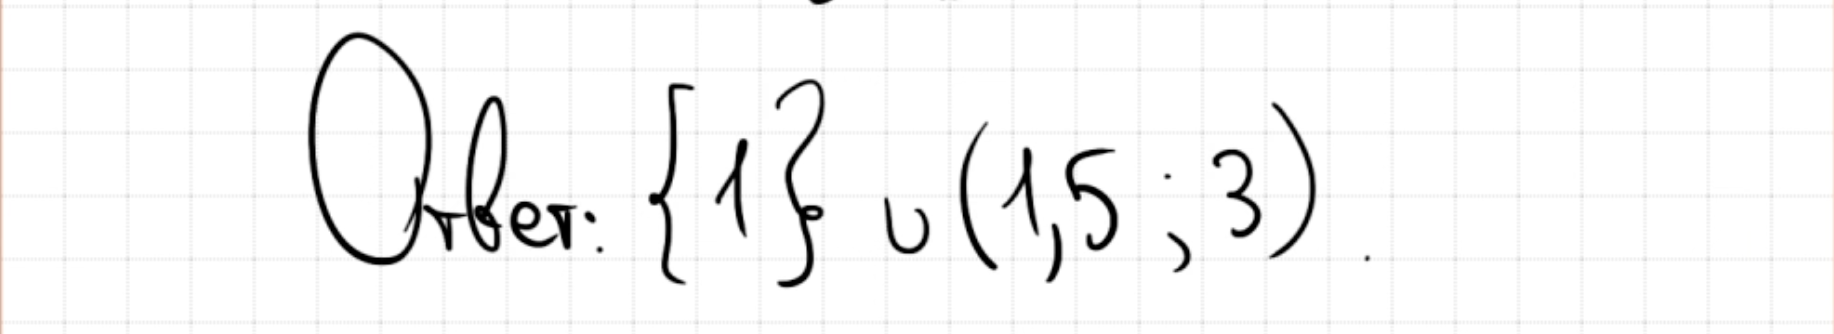 Ответ: {1} ∪ (1,5 ; 3) .